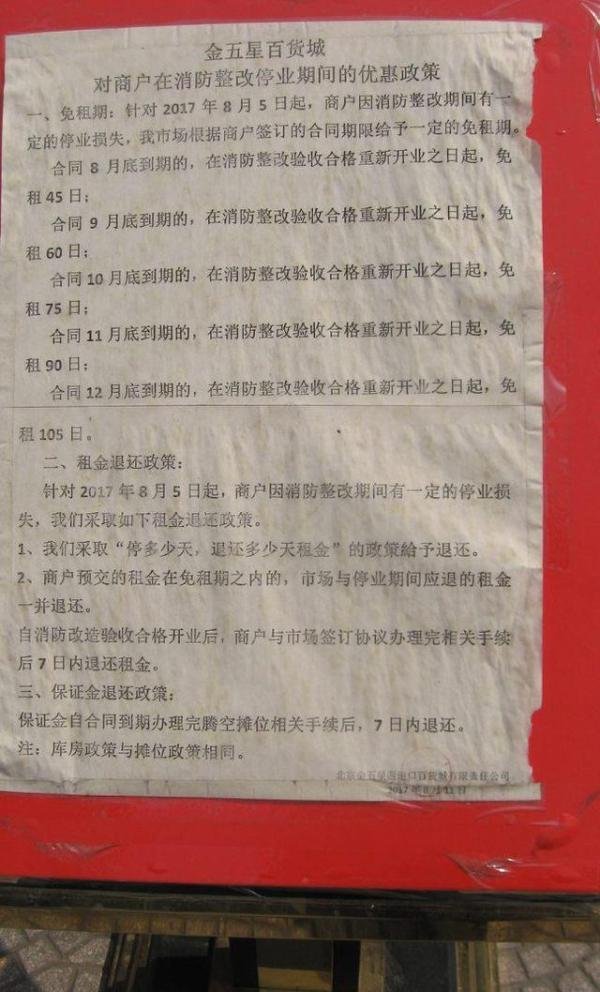 金五星百货城
对商户在消防整改停业期间的优惠政策
一、免租期：针对 2017 年 8 月 5 日起，商户因消防整改期间有一
定的停业损失，我市场根据商户签订的合同期限给予一定的免租期。
合同 8 月底到期的，在消防整改验收合格重新开业之日起，免
租 45 日；
合同 9 月底到期的，在消防整改验收合格重新开业之日起，免
租 60 日；
合同 10 月底到期的，在消防整改验收合格重新开业之日起，免
租 75 日；
合同 11 月底到期的，在消防整改验收合格重新开业之日起，免
租 90 日；
合同 12 月底到期的，在消防整改验收合格重新开业之日起，免
租 105 日。
二、租金退还政策：
针对 2017 年 8 月 5 日起，商户因消防整改期间有一定的停业损
失，我们采取如下租金退还政策。
1、我们采取“停多少天，退还多少天租金”的政策给予退还。
2、商户预交的租金在免租期之内的，市场与停业期间应退的租金
一并退还。
自消防改造验收合格开业后，商户与市场签订协议办理完相关手续
后 7 日内退还租金。
三、保证金退还政策：
保证金自合同到期办理完腾空摊位相关手续后，7 日内退还。
注：库房政策与摊位政策相同。
北京金五星进出口百货城有限责任公司
2017 年 8 月 11 日